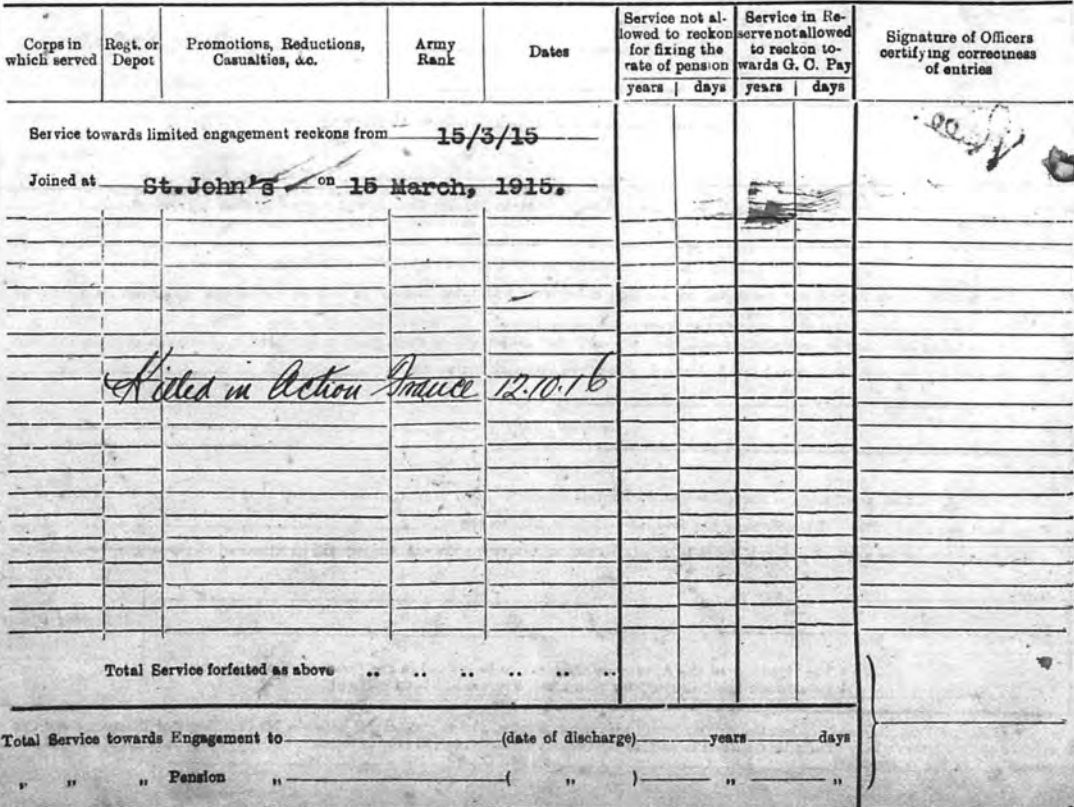 Corps in which served
Regt. or Depot
Promotions, Reductions, Casualties, &c.
Army Rank
Dates
Service not allowed to reckon for fixing the rate of pension
years | days
Service in Reserve not allowed to reckon towards G. C. Pay
years | days
Signature of Officers certifying correctness of entries
Service towards limited engagement reckons from 15/3/15
Joined at St.John's on 15 March, 1915.
Killed in Action France 12.10.16
Total Service forfeited as above .. .. .. .. .. ..
Total Service towards Engagement to (date of discharge) years days
„ „ „ Pension „ ( „ ) „ „